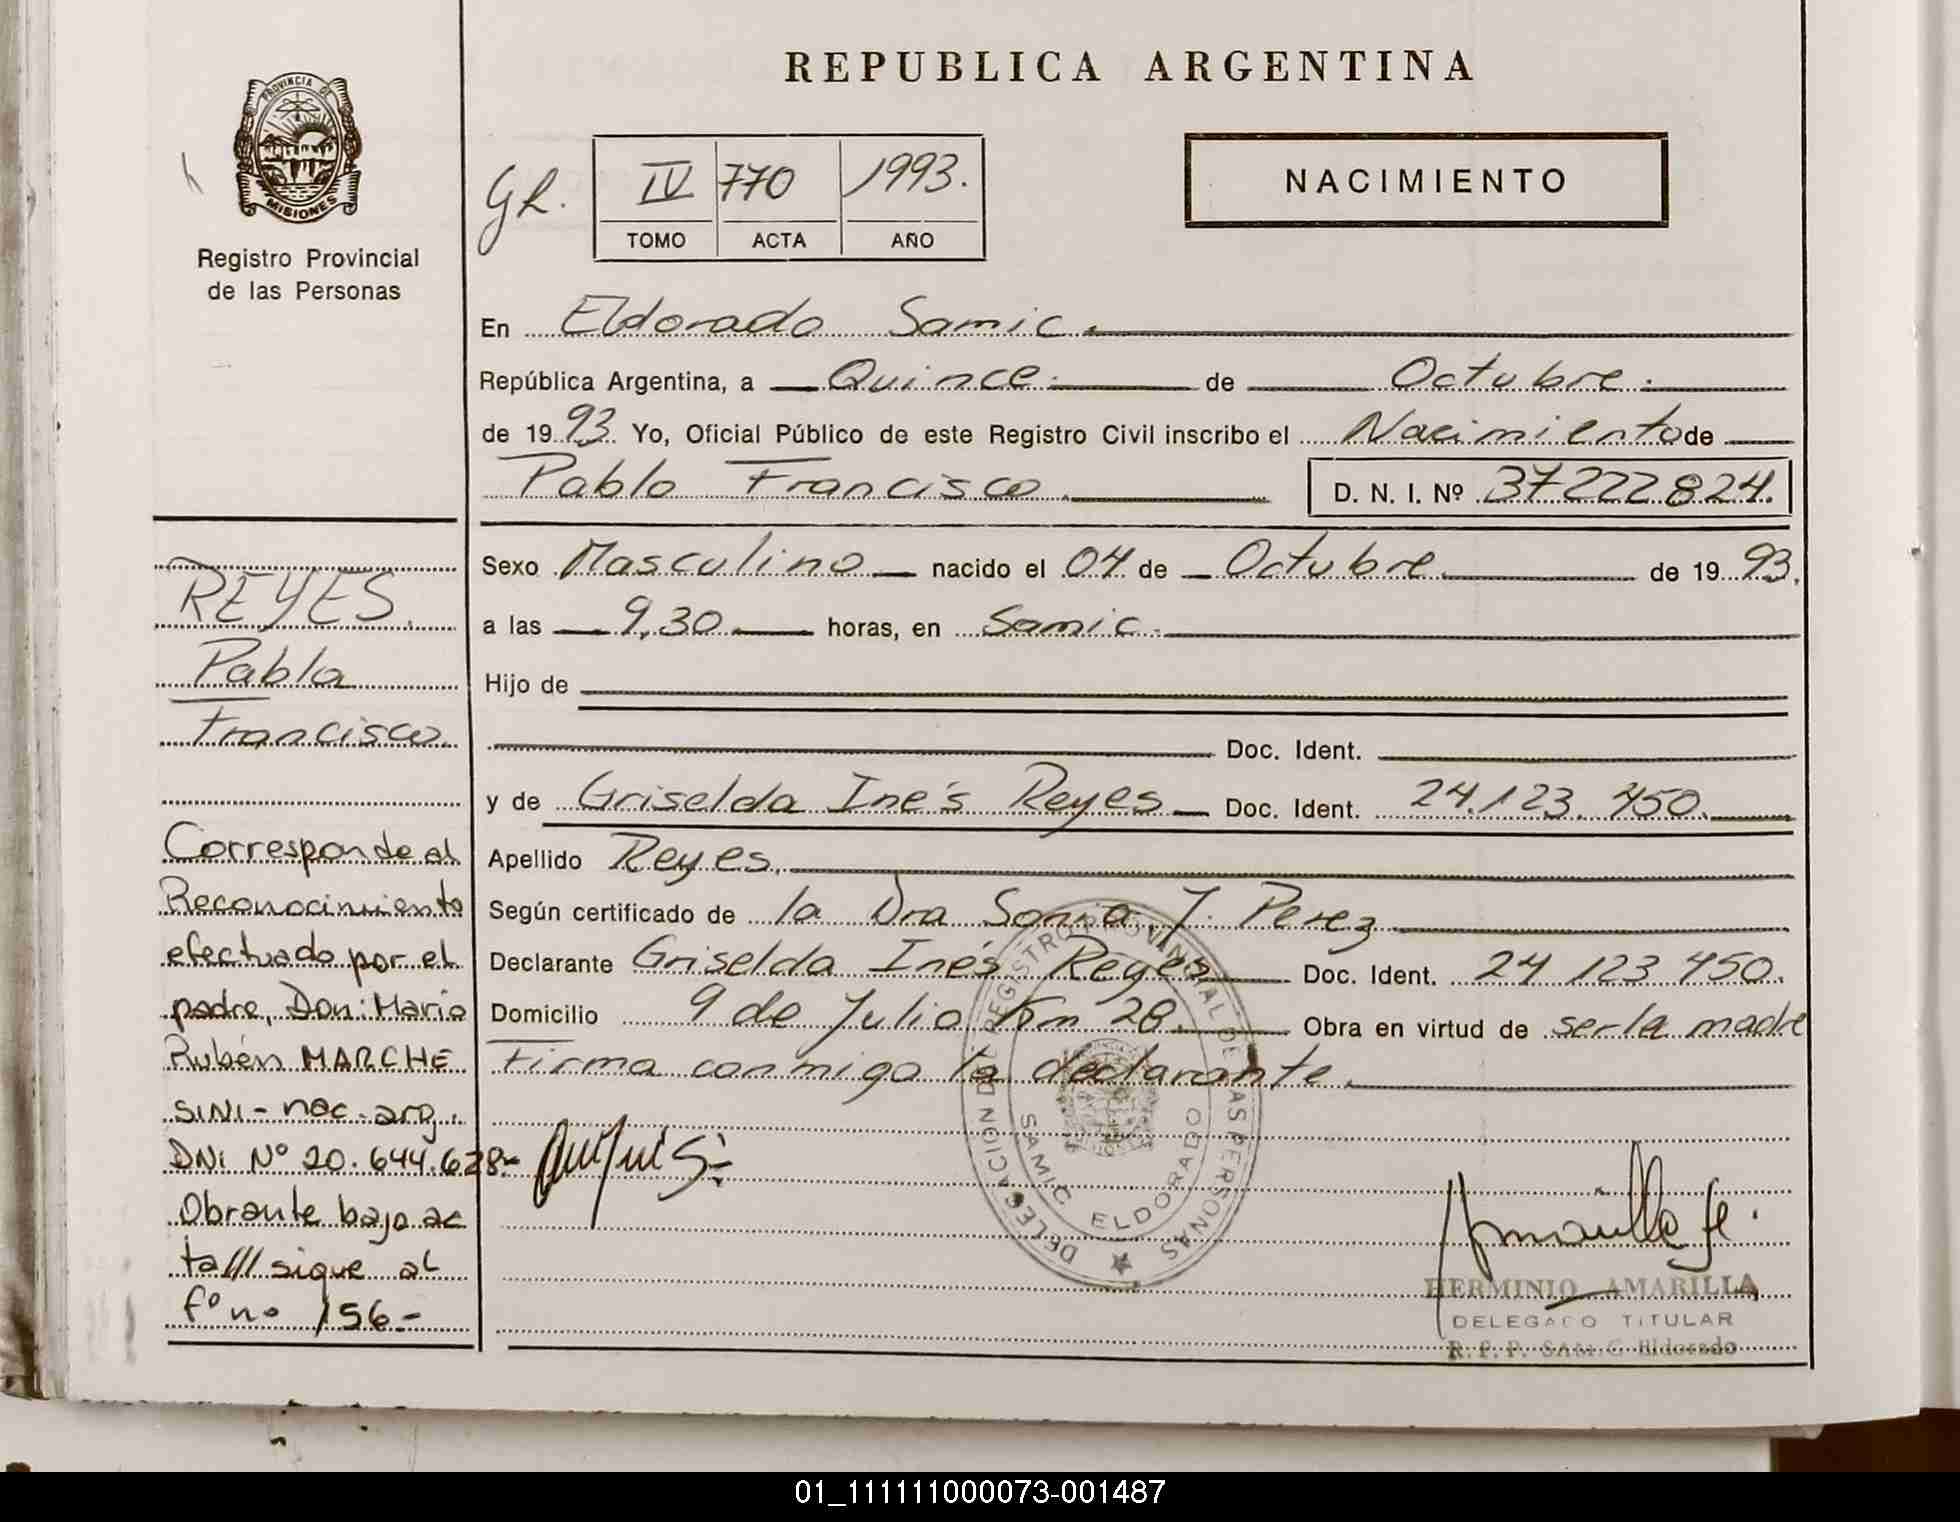 REPUBLICA ARGENTINA
PROVINCIA DE
MISIONES
Registro Provincial
de las Personas
GR.
IV 770 1993.
TOMO ACTA AÑO
NACIMIENTO
En Eldorado Samic.
República Argentina, a Quince. de Octubre.
de 1993. Yo, Oficial Público de este Registro Civil inscribo el Nacimiento de
Pablo Francisco. D. N. I. Nº 37222824.
Sexo Masculino nacido el 04 de Octubre de 1993.
a las 9,30 horas, en Samic.
Hijo de
Doc. Ident.
y de Griselda Inés Reyes Doc. Ident. 24.123.450.
Apellido Reyes.
Según certificado de la Dra Sonia J. Perez
Declarante Griselda Inés Reyes Doc. Ident. 24 123 450.
Domicilio 9 de Julio Km 28. Obra en virtud de ser la madre
Firma conmigo la declarante.
REYES.
Pablo
Francisco.
Corresponde al
Reconocimiento
efectuado por el
padre, Don: Mario
Rubén MARCHE
SINI- nac. arg.
DNI Nº 20.644.628.-
Obrante bajo ac
ta/// sigue al
fº nº 156-
DELEGACION DE REGISTRO PROVINCIAL DE LAS PERSONAS
SAMIC ELDORADO
HERMINIO AMARILLA
DELEGADO TITULAR
R. P. P. SAMIC Eldorado
01_111111000073-001487